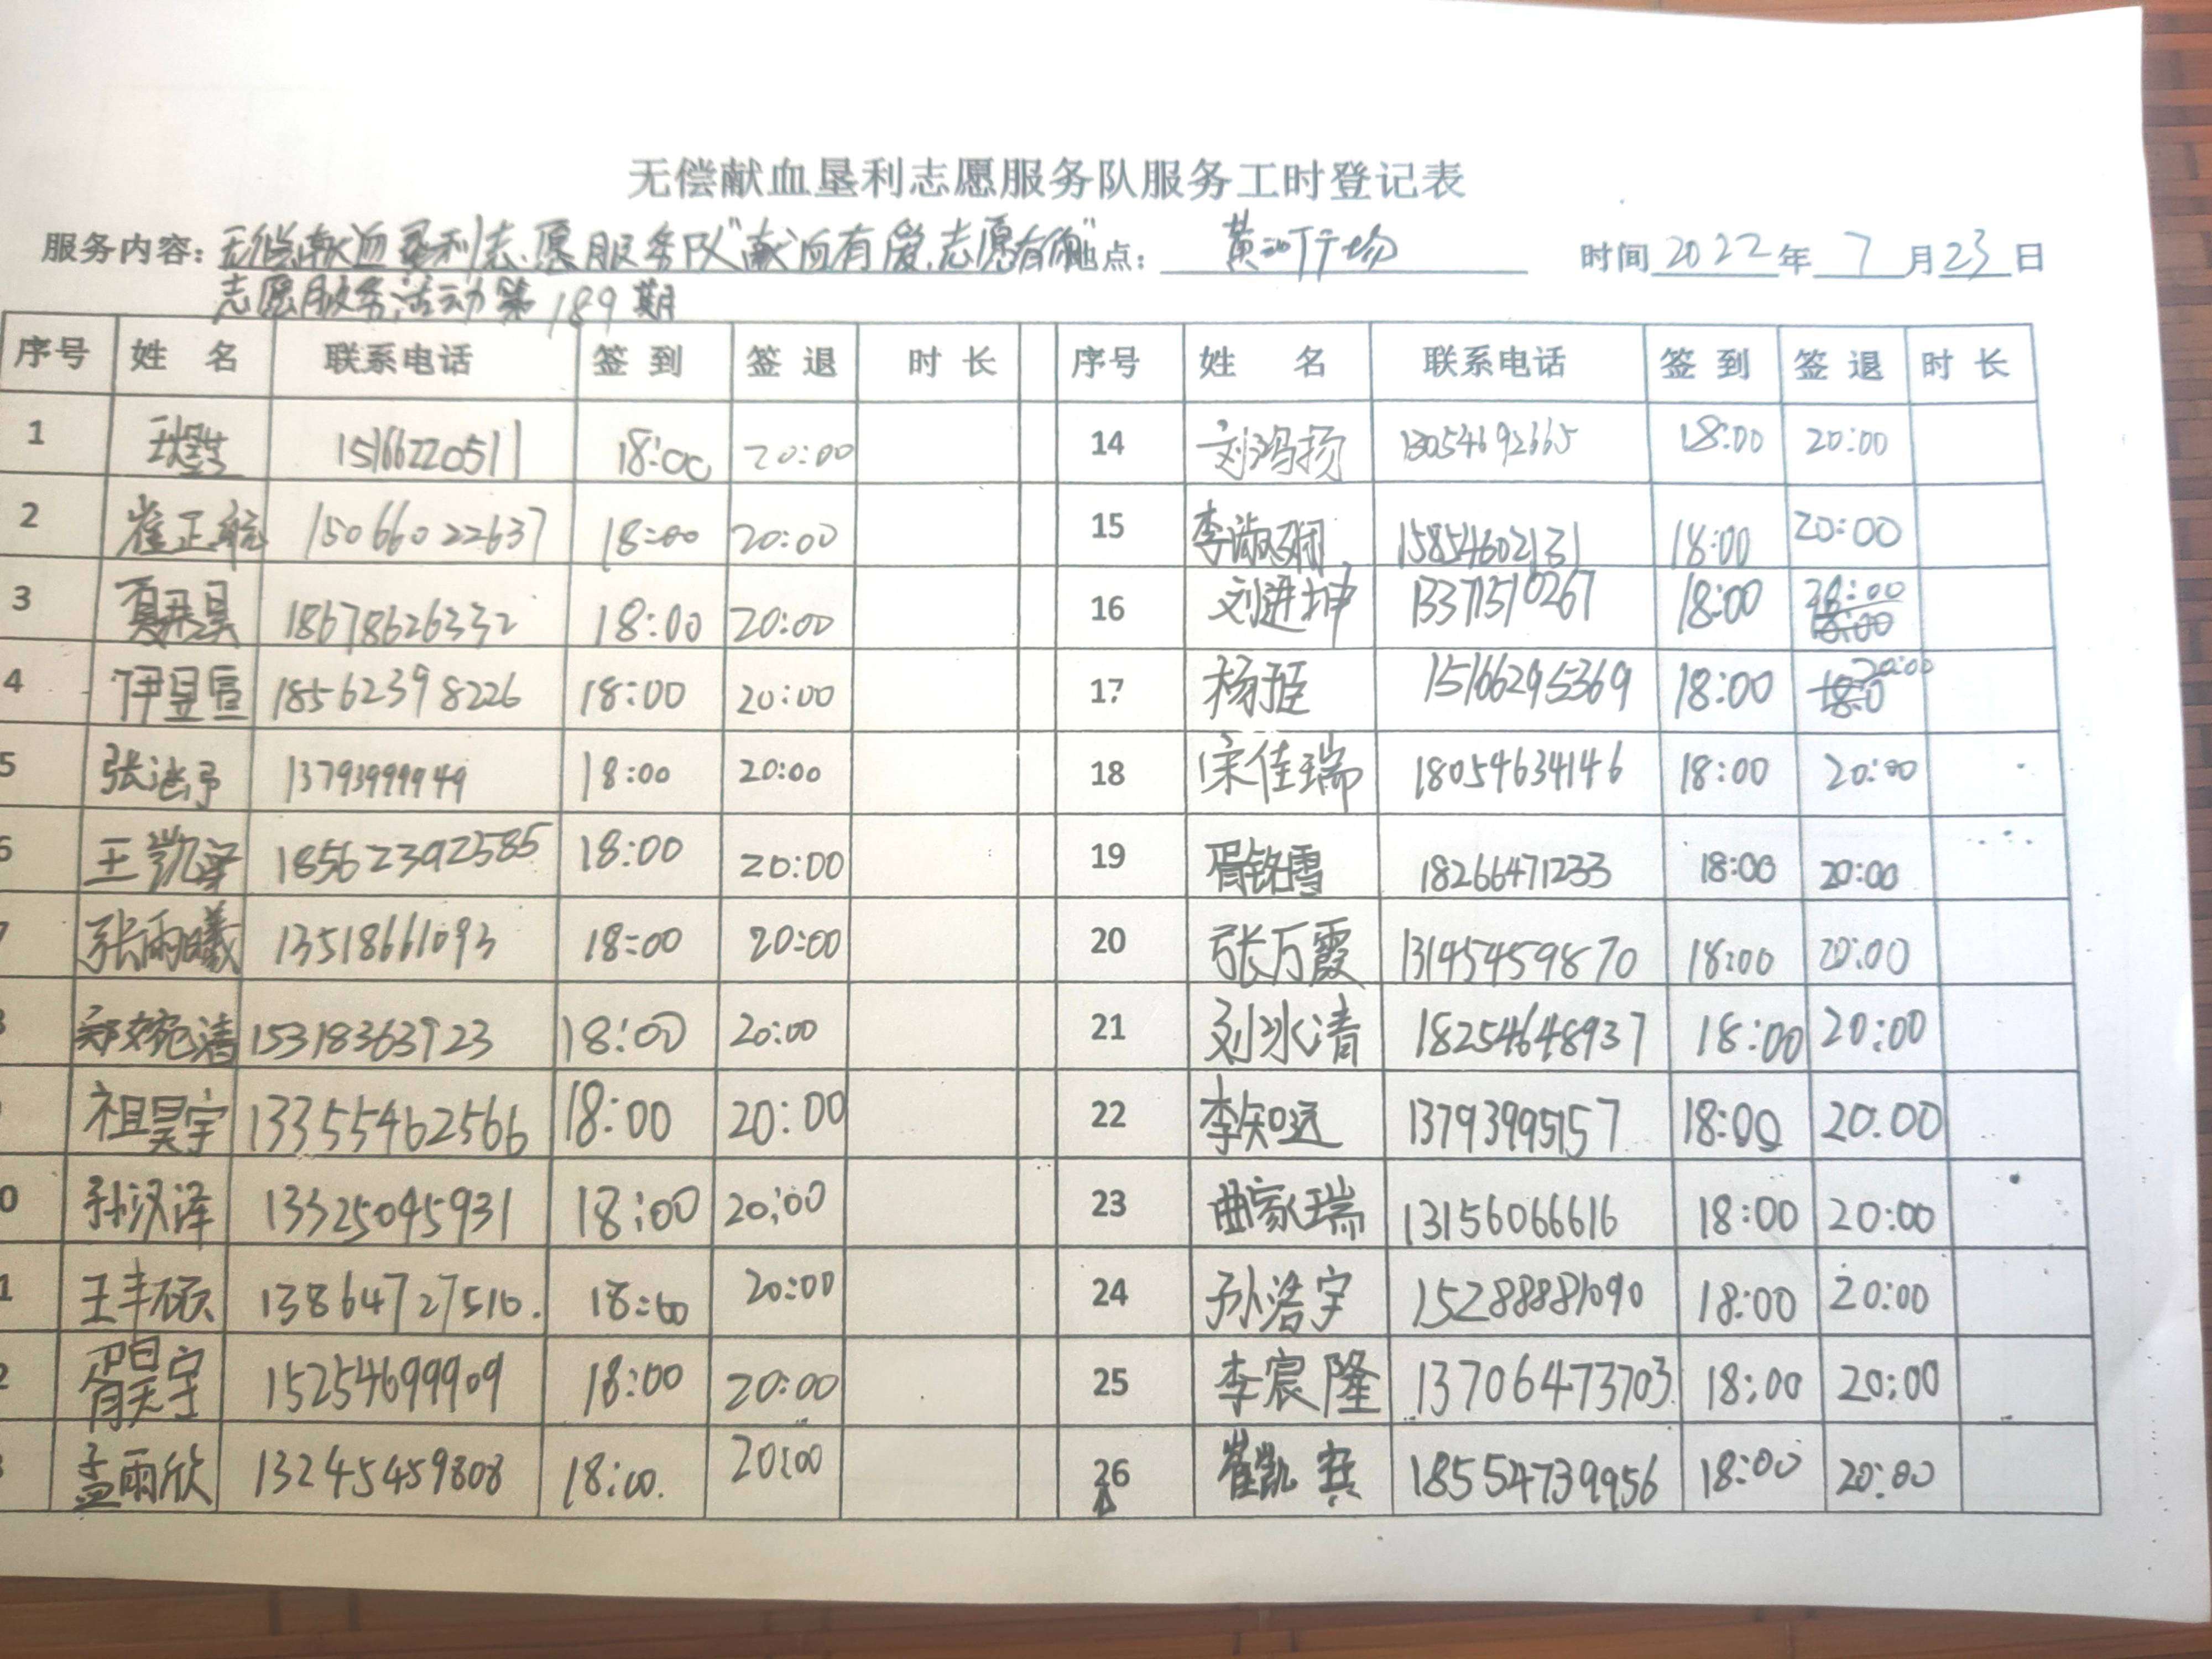 无偿献血垦利志愿服务队服务工时登记表
服务内容：无偿献血垦利志愿服务队"献血有爱，志愿有你" 地点：黄河广场 时间 2022 年 7 月 23 日
志愿服务活动第189期
序号 姓 名 联系电话 签 到 签 退 时 长 序号 姓 名 联系电话 签 到 签 退 时 长
1 15166220511 18:00 20:00 14 刘鸿扬 13054692665 18:00 20:00
2 崔正航 15066022637 18:00 20:00 15 李淑娴 15854602131 18:00 20:00
3 18678626332 18:00 20:00 16 刘进坤 13371510267 18:00 20:00
4 伊昱宣 18562398226 18:00 20:00 17 杨 15166295369 18:00 20:00
5 张 13793999949 18:00 20:00 18 宋佳瑞 18054634146 18:00 20:00
6 王凯 18562392585 18:00 20:00 19 胥铭雪 18266471233 18:00 20:00
7 张雨曦 13518661093 18:00 20:00 20 张万霞 13145459870 18:00 20:00
郑婉清 15318363923 18:00 20:00 21 刘冰清 18254648937 18:00 20:00
祖昊宇 13355462566 18:00 20:00 22 李知远 13793995157 18:00 20:00
0 孙汉泽 13325045931 18:00 20:00 23 曲家瑞 13156066616 18:00 20:00
1 王丰硕 13864727510. 18:00 20:00 24 孙浩宇 15288881090 18:00 20:00
2 胥昊宇 15254699909 18:00 20:00 25 李宸隆 13706473703 18:00 20:00
孟雨欣 13245459808 18:00. 20:00 26 崔凯 18554739956 18:00 20:00